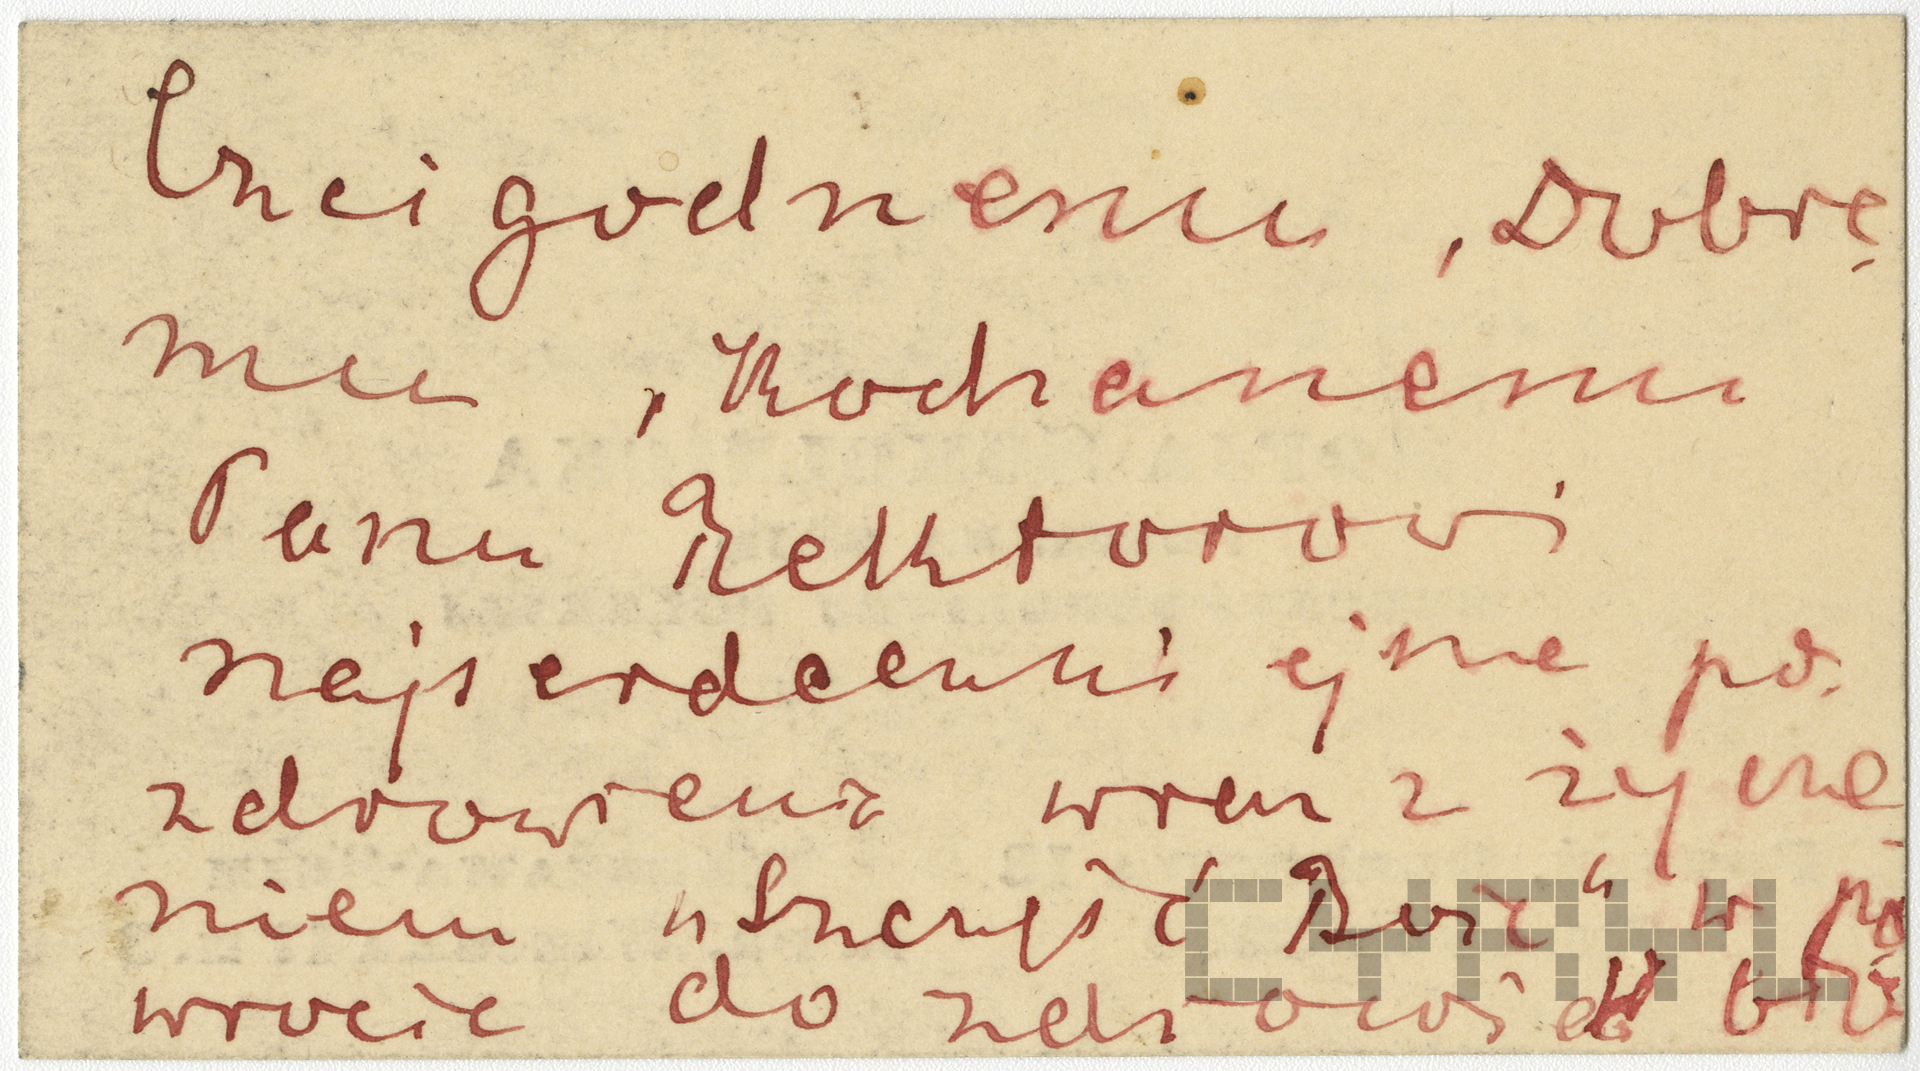 Czcigodnemu, Dobre
mu, Kochanemu
Panu Rektorowi
najserdeczniejsze po.
zdrowienia wraz z życze
niem „Szczęść Boże“ w po
wrocie do zdrowia
CYRYL